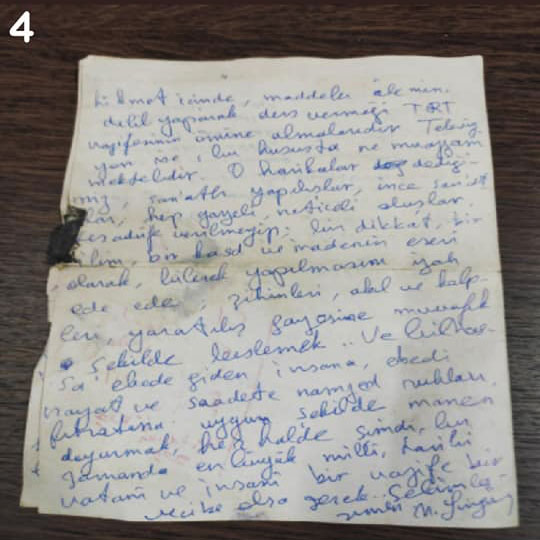 4
hikmet içinde, maddeler âlemin.
delil yaparak ders vermeği TRT
vazifesinin önüne almalarıdır. Televiz-
yon ise, bu hususta ne muazzam
mekteldir. O harikalar dediği-
miz, san'atlı yapılışlar, ince san'at
ları, hep gayeli, neticeli oluşlar.
tesadüfe verilmeyip; bir dikkat, bir
ilim, bir kasd ve iradenin eseri
olarak, bilerek yapılmasını izah
ede ede; zihinleri, akıl ve kalp-
leri, yaratılış gayesine muvafık
şekilde beslemek.. Ve bilhas-
sa ebede giden insana, ebedi
hayat ve saadete namzed ruhları,
fıtratına uygun şekilde manen
doyurmak, her halde şimdi, bu
zamanda en büyük milli, tarihi
vatani ve insani bir vazife bir
vecibe olsa gerek.. Selâmlar